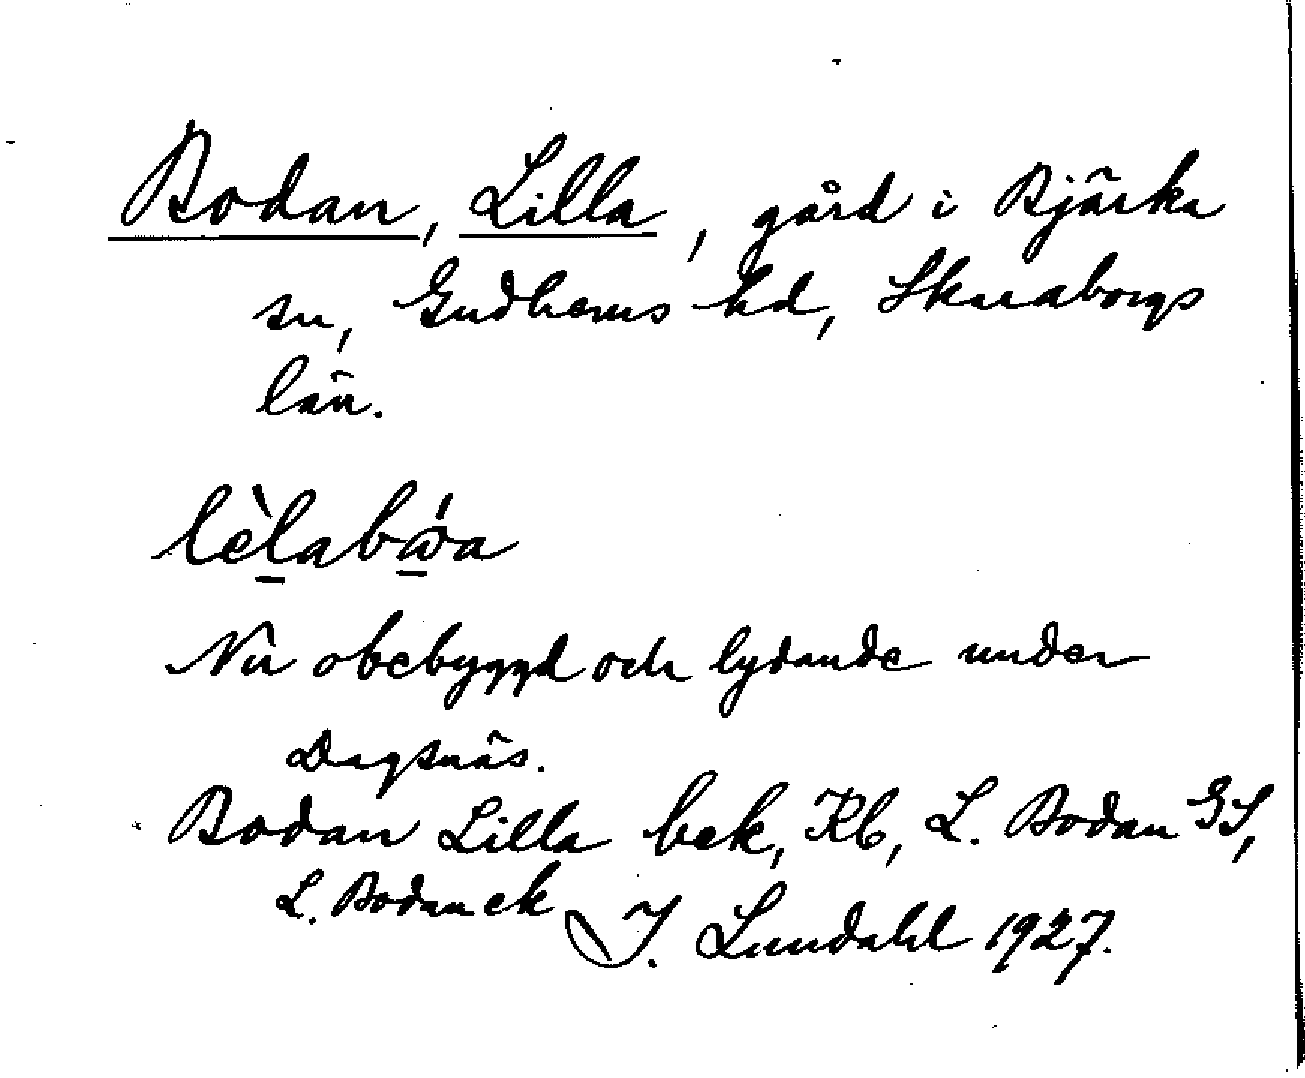 Bodan, Lilla, gård i Bjärka
sn, Gudhems hd, Skaraborgs
län.
lèlabó̲a
Nu obebyggd och lydande under
Dagsnäs.
Bodan Lilla bek, Kb, L. Bodan GS,
L. Bodan ek
I. Lundahl 1927.